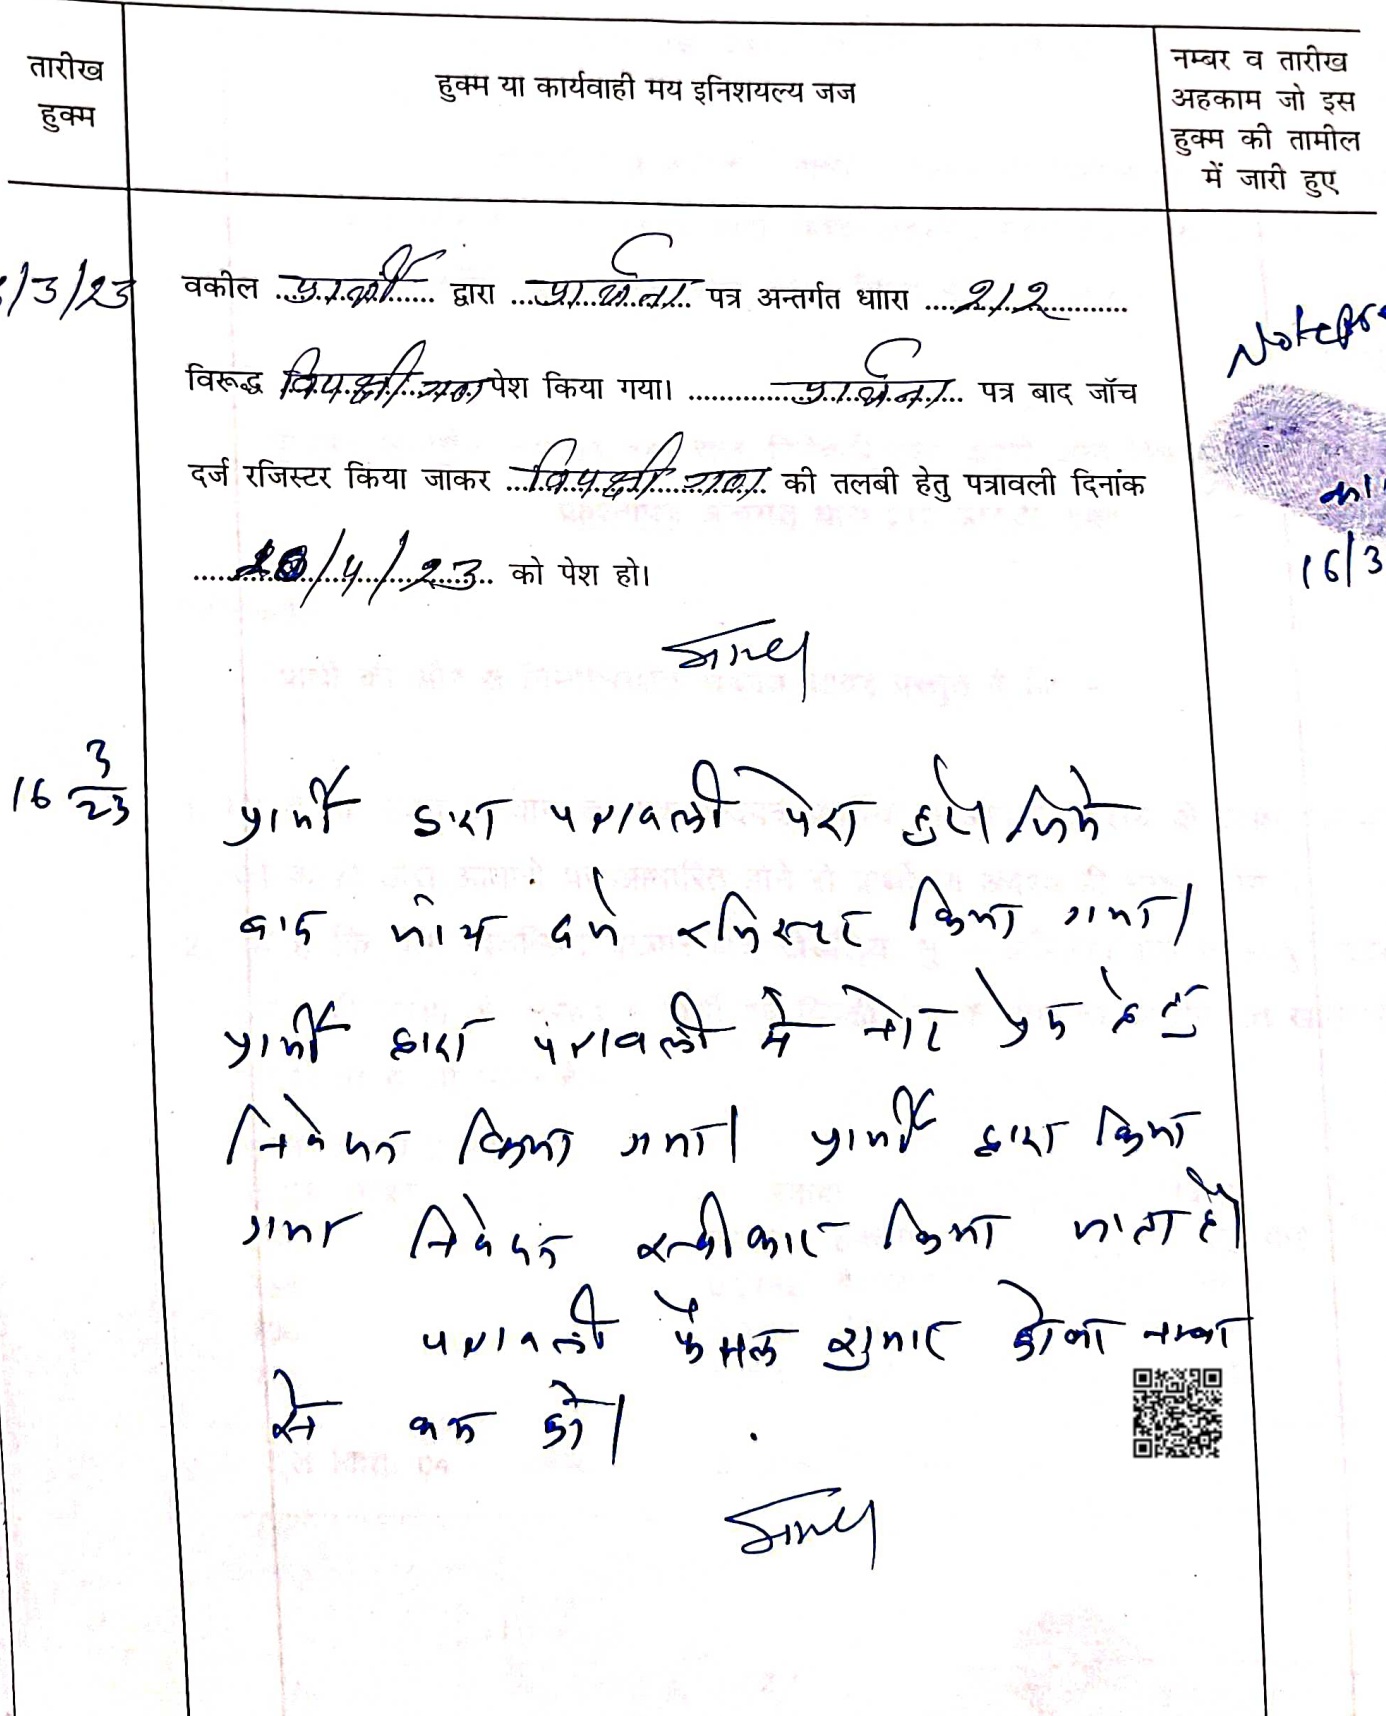 तारीख
हुक्म
हुक्म या कार्यवाही मय इनिशयल्य जज
नम्बर व तारीख
अहकाम जो इस
हुक्म की तामील
में जारी हुए
/3/23
वकील प्रार्थी द्वारा प्रार्थना पत्र अन्तर्गत धाारा 212
विरूद्ध विपक्षी गण पेश किया गया। प्रार्थना पत्र बाद जॉच
दर्ज रजिस्टर किया जाकर विपक्षी गण की तलबी हेतु पत्रावली दिनांक
20/4/23 को पेश हो।
16/3
16 3/23
प्रार्थी द्वारा पत्रावली पेश हुई।
बाद जांच दर्ज रजिस्टर किया गया।
प्रार्थी द्वारा पत्रावली में नोट प्रेस हेतु
निवेदन किया गया। प्रार्थी द्वारा किया
गया निवेदन स्वीकार किया जाता है।
पत्रावली फैसल शुमार होकर नम्बर
से कम हो।